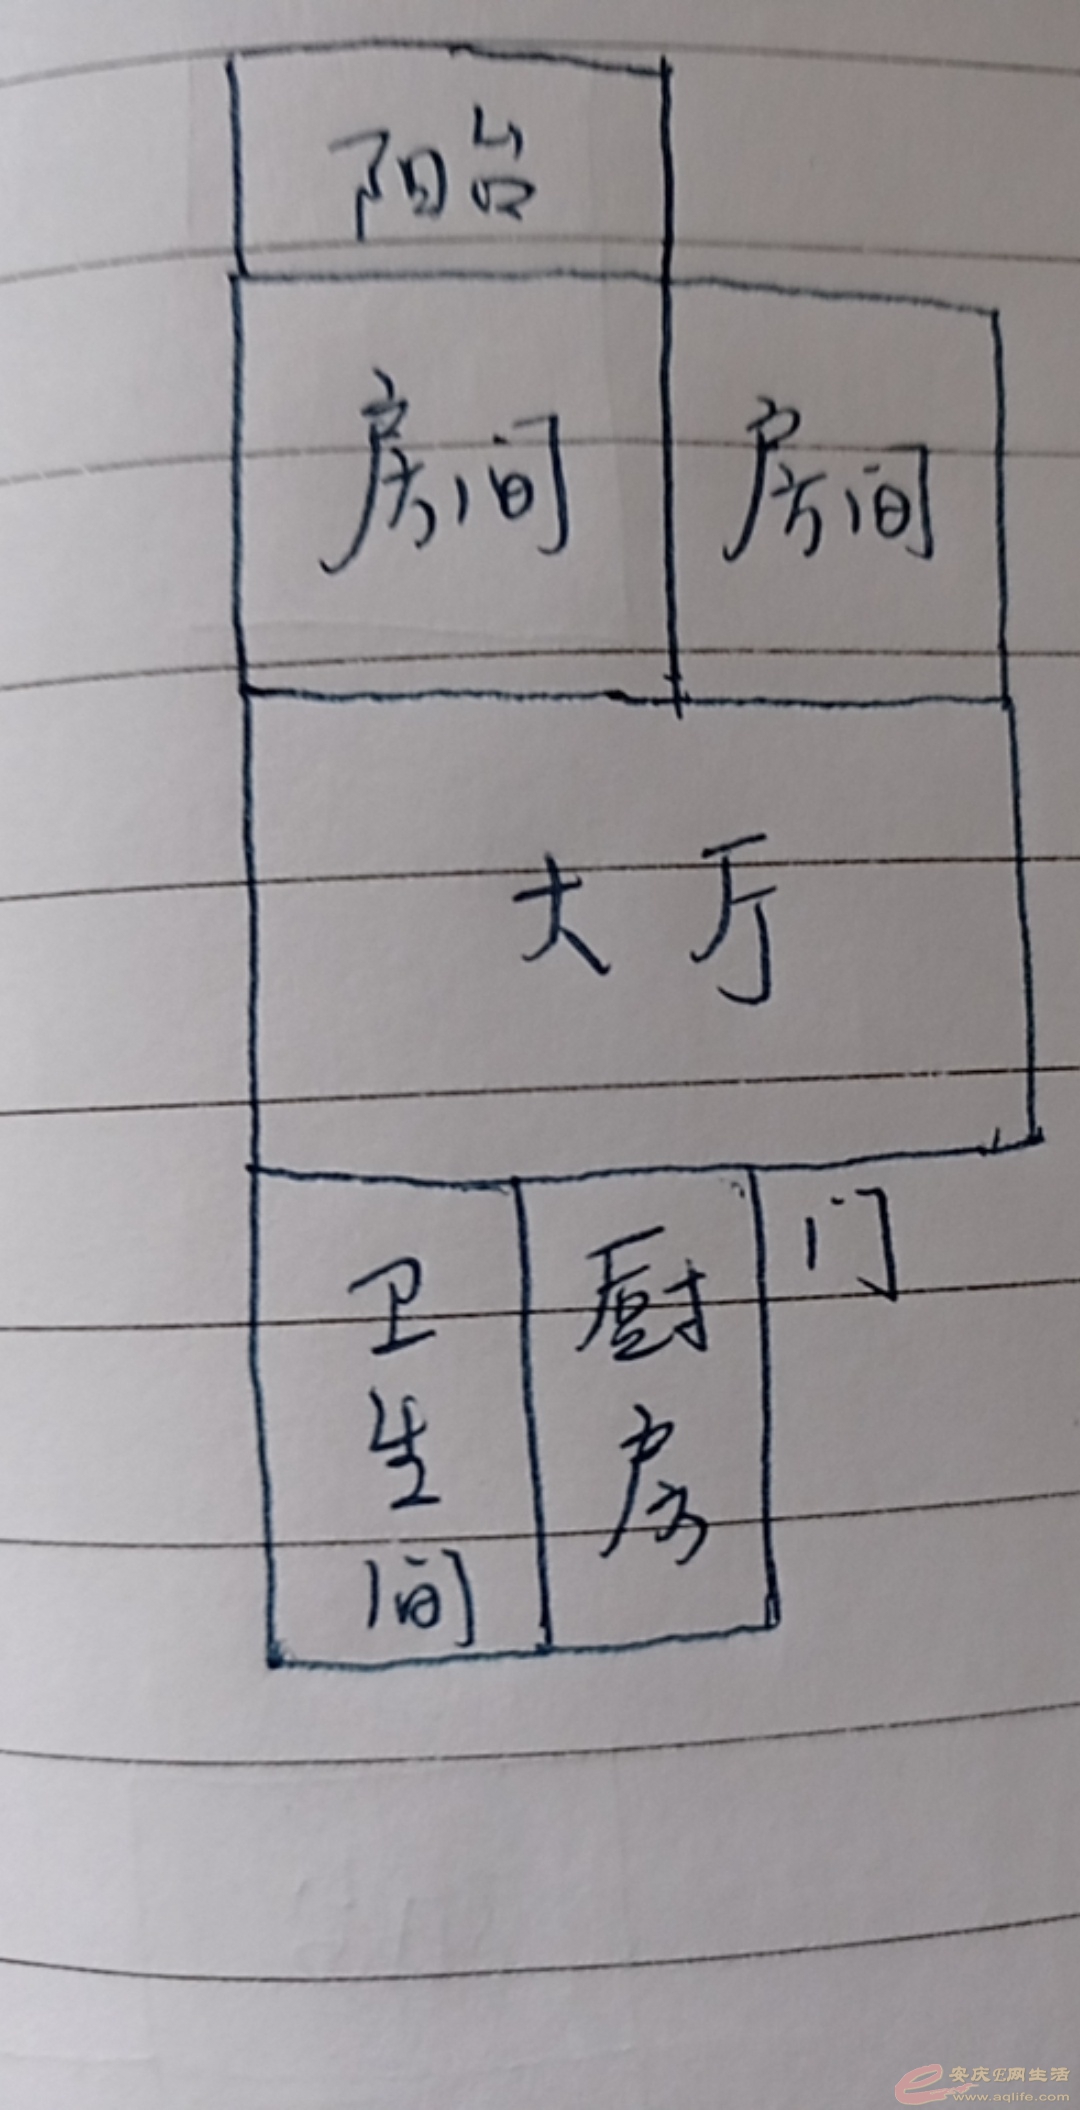 阳台
房间 房间
大厅
卫生间 厨房 门
安庆E网生活
www.aqlife.com